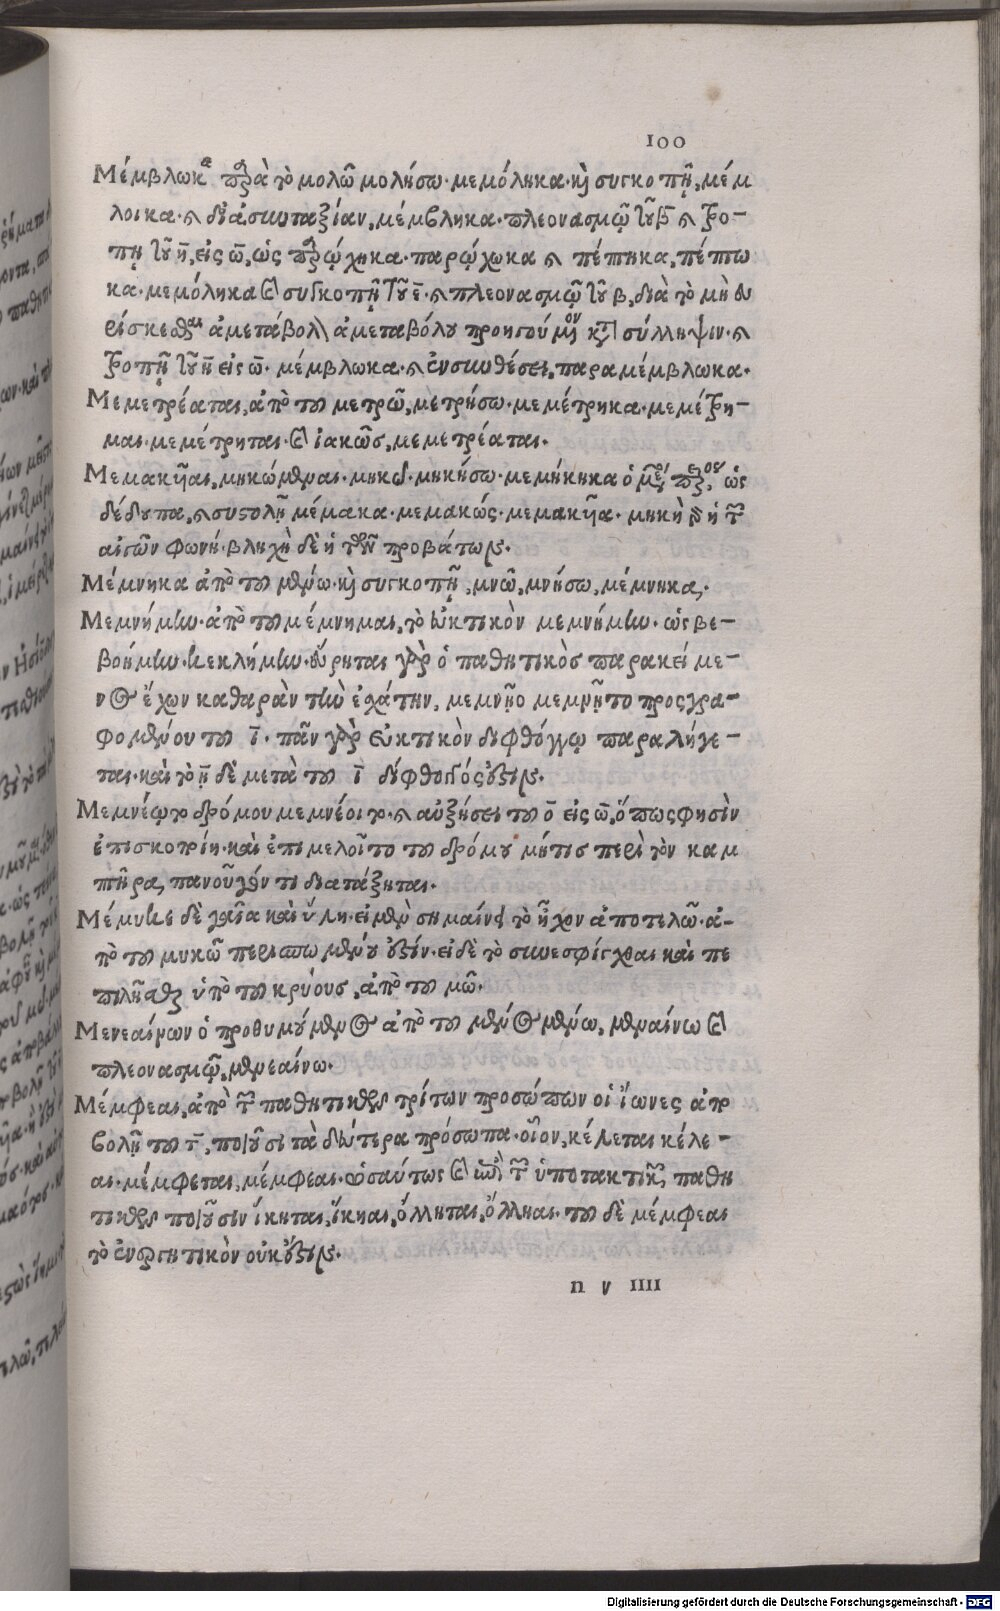 100
Μέμβλωκα παρὰ τὸ μολῶ μολήσω· μεμόληκα· κỳ συγκοπῇ, μέμ
λοικα· καὶ διάσυνταξίαν, μέμβληκα· πλεονασμῷ τοῦ β καὶ τρο-
πῇ τοῦ η, εἰς ω, ὡς παρῴχηκα· παρῴχωκα καὶ πέπτηκα, πέπτω
κα· μεμόληκα καὶ συγκοπῇ τοῦ ε· καὶ πλεονασμῷ τοῦ β, διὰ τὸ μὴ εὑ
ρίσκεσθαι ἀμετάβολον ἀμεταβόλου προηγούμενον κατὰ σύλληψιν· καὶ
τροπῇ τοῦ η εἰς ω· μέμβλωκα· καὶ ἐν συνθέσει, παραμέμβλωκα·
Μεμετρέαται, ἀπὸ τοῦ μετρῶ, μετρήσω· μεμέτρηκα· μεμέτρη-
μαι· μεμέτρηται· καὶ ἰακῶς, μεμετρέαται·
Μεμακῆαι, μηκώμεναι· μηκῶ· μηκήσω· μεμήκηκα ὁ μέσος, ὡς
δέδουπα, καὶ συστολῇ μέμακα· μεμακώς· μεμακῆα· μηκὴ δὲ ἡ τῶν
αἰγῶν φωνή· βληχὴ δὲ ἡ τῶν προβάτων ἐστι·
Μέμνηκα ἀπὸ τοῦ μένω· κỳ συγκοπῇ, μνῶ, μνήσω, μέμνηκα·
Μεμνήμην· ἀπὸ τοῦ μέμνημαι, τὸ εὐκτικὸν μεμνήμην· ὡς βε-
βοήμην· κεκλήμην· εὕρηται γὰρ ὁ παθητικὸς παρακείμε-
νος ἔχων καθαρὰν τὴν ἐσχάτην, μεμνῇο μεμνῇτο προσγρα-
φομένου τοῦ ι· πᾶν γὰρ εὐκτικὸν διφθόγγῳ παραλήγε-
ται· καὶ τὸ η δὲ μετὰ τοῦ ι δίφθογγός ἐστι·
Μεμνέῳτο δρόμου μεμνέοιτο· καὶ αὐξήσει τοῦ ο εἰς ω, ὅπως φησὶν
ἐπισκοπίη· καὶ ἐπιμελοῖτο τοῦ δρόμου μήτις περὶ τὸν καμ
πτῆρα, πανοῦργόν τι διατάξηται·
Μέμυκε δὲ γαῖα καὶ ὕλη· εἰ μὲν σημαίνει τὸ ἦχον ἀποτελῶ· ἀ-
πὸ τοῦ μυκῶ περισπωμένου ἐστίν· εἰ δὲ τὸ συνεσφίγχθαι καὶ πε
πιλῆσθαι ὑπὸ τοῦ κρύους, ἀπὸ τοῦ μῶ·
Μενεαίνων ὁ προθυμούμενος ἀπὸ τοῦ μένος μένω, μεναίνω καὶ
πλεονασμῷ, μενεαίνω·
Μέμφεαι, ἀπὸ τῶν παθητικῶν τρίτων προσώπων οἱ ἴωνες ἀπο
βολῇ τοῦ τ, ποιοῦσι τὰ δεύτερα πρόσωπα· οἷον, κέλεται κέλε-
αι· μέμφεται, μέμφεαι· ὡσαύτως καὶ ἐπὶ τῶν ὑποτακτικῶν, παθη
τικῶν ποιοῦσιν ἵκηται, ἵκηαι, ὄλληται, ὄλληαι· τοῦ δὲ μέμφεαι
τὸ ἐνεργητικὸν οὐκ ἔστι·
n ν IIII
Digitalisierung gefördert durch die Deutsche Forschungsgemeinschaft - DFG